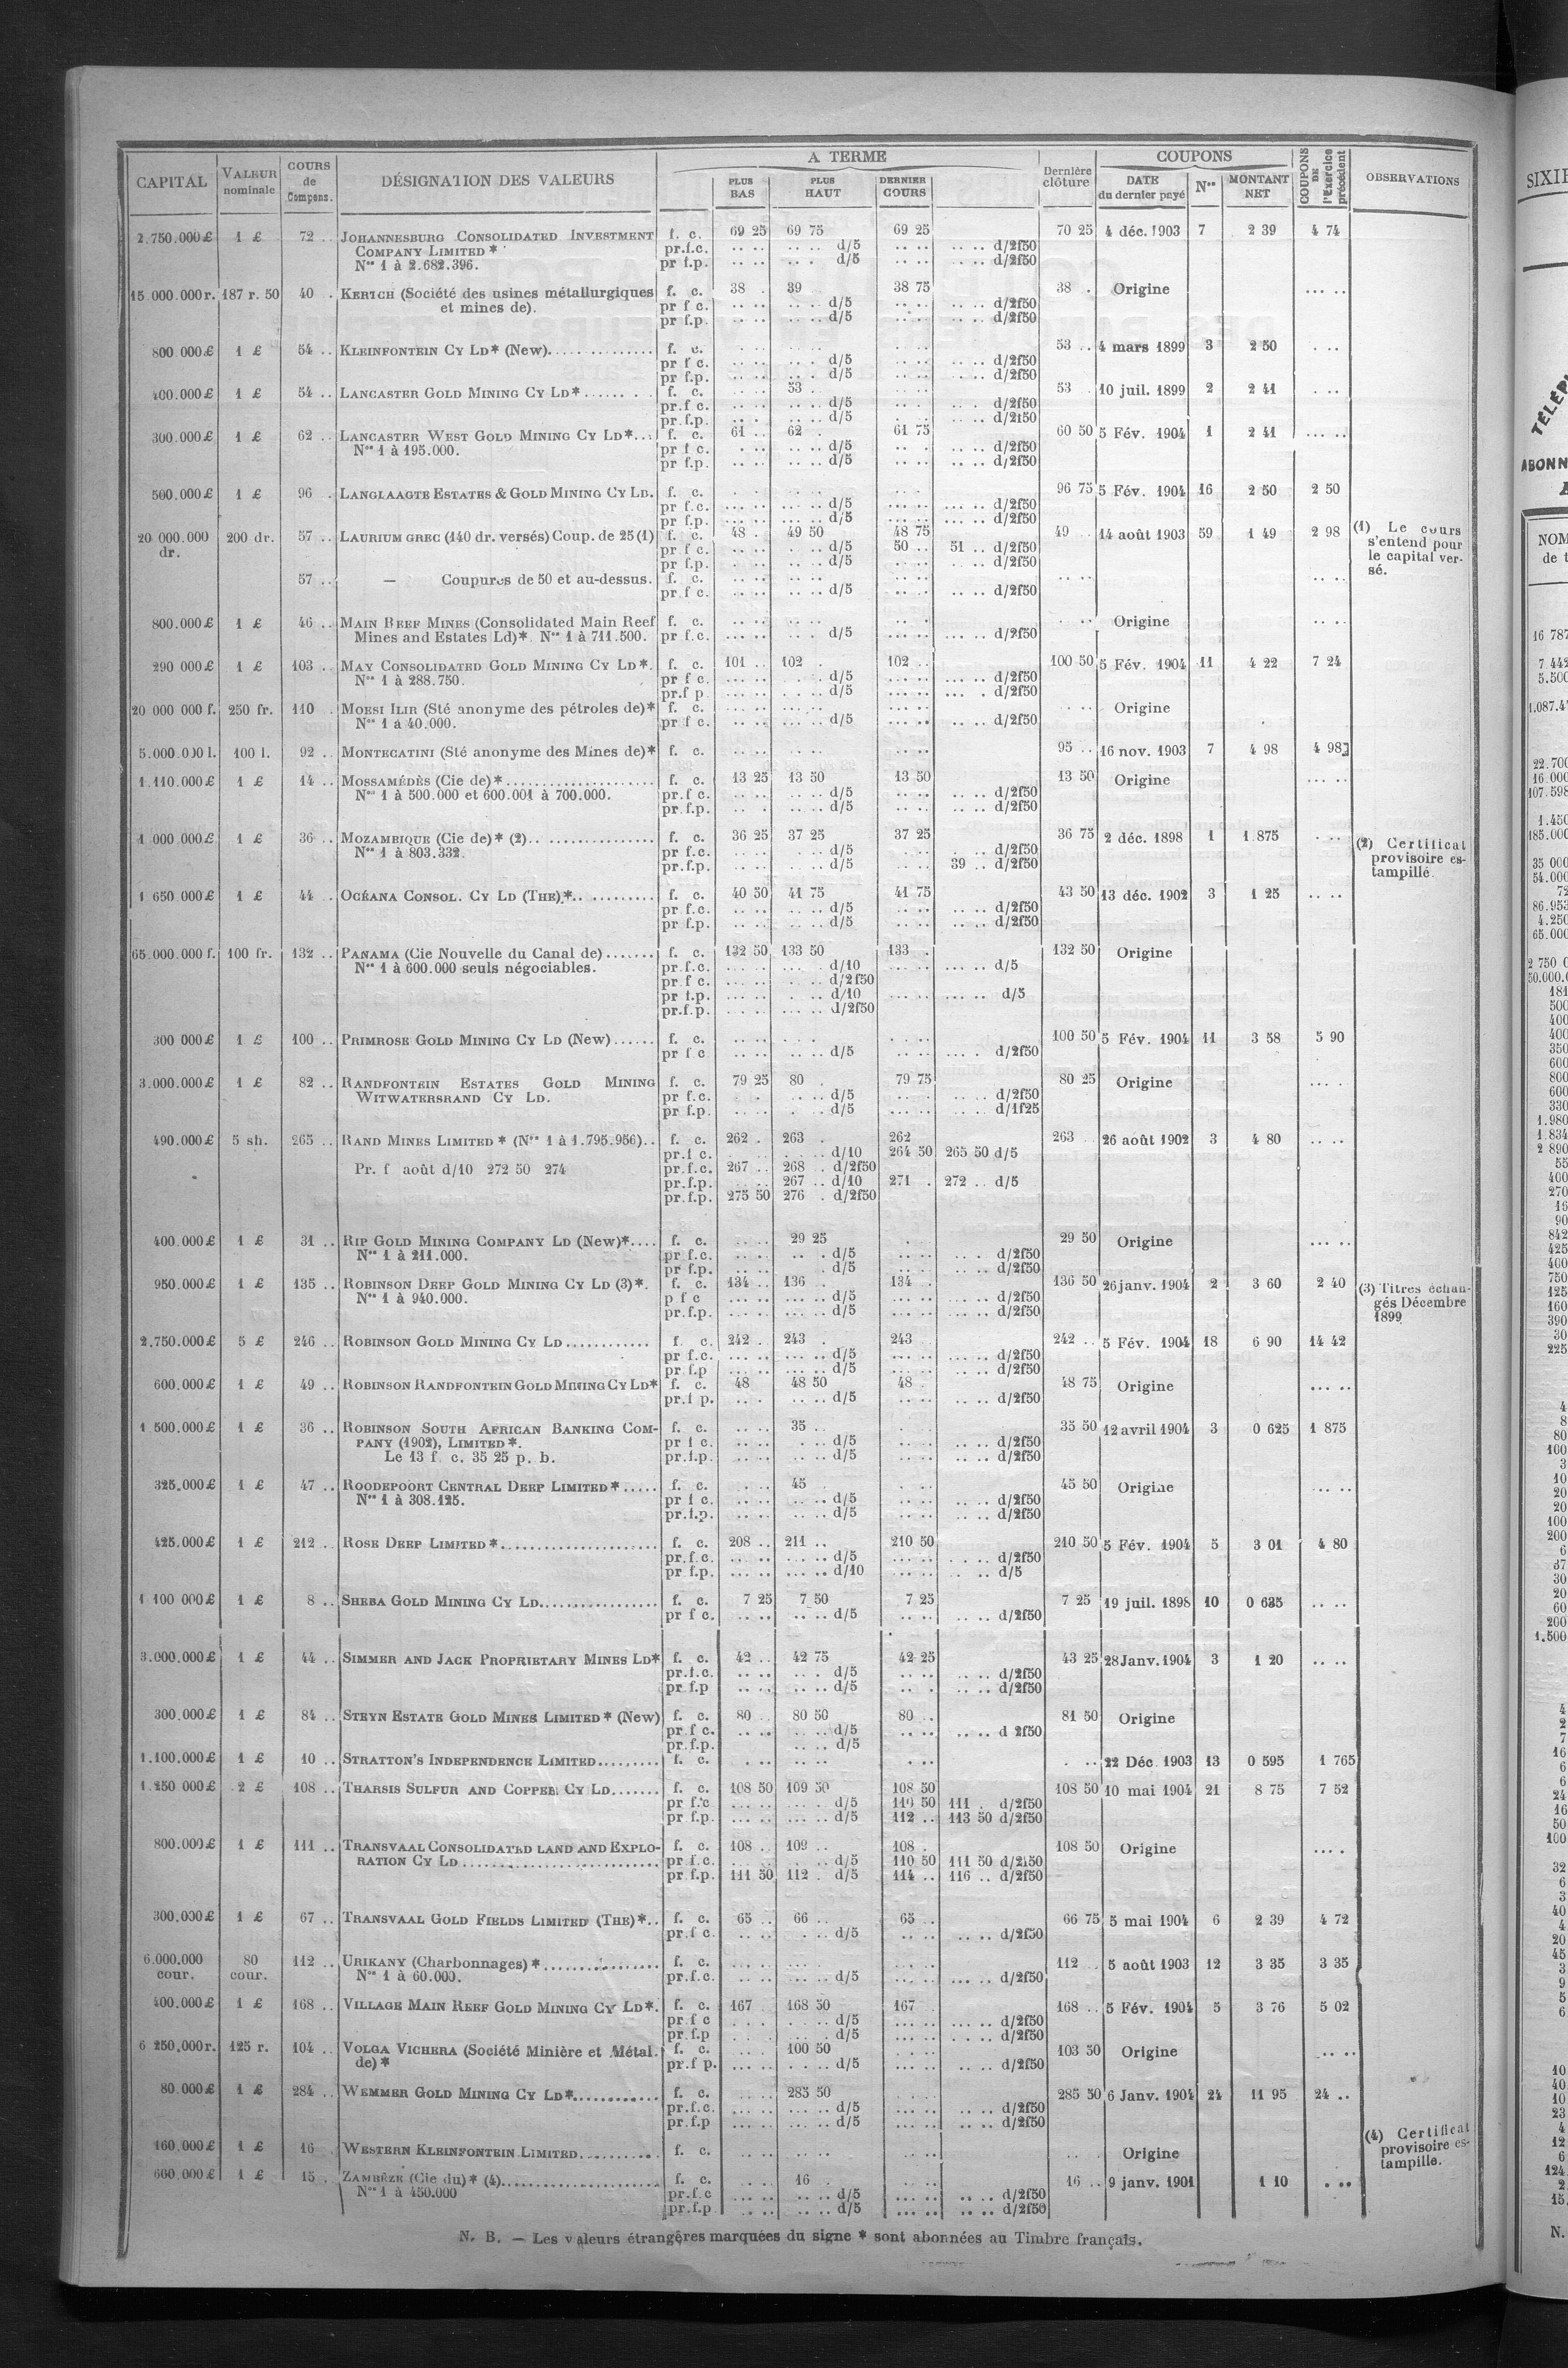 A TERME
COUPONS
CAPITAL
VALEUR nominale
COURS de Compens.
DÉSIGNATION DES VALEURS
PLUS BAS
PLUS HAUT
DERNIER COURS
Dernière clôture
DATE du dernier payé
Nos
MONTANT NET
COUPONS DE l'Exercice précédent
OBSERVATIONS
2.750.000£ 1 £ 72 .. JOHANNESBURG CONSOLIDATED INVESTMENT f. c. 69 25 69 75 69 25 70 25 4 déc. 1903 7 2 39 4 74
COMPANY LIMITED * pr.f.c. .. .. .. .. d/5 .. .. .. .. d/2f50
Nos 1 à 2.682.396. pr f.p. .. .. .. . d/5 .. .. .. .. d/2f50
15 000.000r. 187 r. 50 40 . KERTCH (Société des usines métallurgiques f. c. 38 . 39 38 75 38 . Origine ... ..
et mines de). pr f c. .. .. .. .. d/5 .. .. .. .. d/2f50
pr f.p. .. .. .. .. d/5 .. .. .. .. d/2f50
800 000£ 1 £ 54 .. KLEINFONTEIN CY LD* (New)............... f. c. 53 .. 4 mars 1899 3 2 50 . ..
pr f c. .. .. .. .. d/5 .. .. .. .. d/2f50
pr f.p. .. .. .. .. d/5 .. .. .. .. d/2f50
400.000£ 1 £ 54 .. LANCASTER GOLD MINING CY LD*........ f. c. 53 . 53 . 10 juil. 1899 2 2 41 . ..
pr.f c. .. .. .. .. d/5 .. .. .. . d/2f50
pr.f.p. .. .. .. .. d/5 . .. .. .. d/2f50
300.000£ 1 £ 62 .. LANCASTER WEST GOLD MINING CY LD*... f. c. 61 .. 62 . 61 75 60 50 5 Fév. 1904 1 2 41 ... ..
Nos 1 à 195.000. pr f c. . .. .. .. d/5 .. . .. .. d/2f50
pr f.p. .. .. .. .. d/5 .. .. .. .. d/2f50
500.000£ 1 £ 96 . LANGLAAGTE ESTATES & GOLD MINING CY LD. f. c. 96 75 5 Fév. 1904 16 2 50 2 50
pr f.c. ... .. ... .. d/5 ... .. ... .. d/2f50
pr f.p. ... .. ... .. d/5 ... .. ... .. d/2f50
20 000.000 dr. 200 dr. 57 .. LAURIUM GREC (140 dr. versés) Coup. de 25 (1) f. c. 48 . 49 50 48 75 49 .. 14 août 1903 59 1 49 2 98 (1) Le cours s'entend pour le capital versé.
pr f c. .. .. . .. d/5 50 .. 51 .. d/2f50
pr f.p. .. .. .. .. d/5 .. .. .. .. d/2f50
57 .. — Coupures de 50 et au-dessus. f. c. .. .. .. .. .. .. .. .. .. ..
pr f c. .. .. .. .. d/5 .. .. .. .. d/2f50
800.000£ 1 £ 46 .. MAIN REEF MINES (Consolidated Main Reef f. c. Origine .. ..
Mines and Estates Ld)*. Nos 1 à 711.500. pr f.c. ... .. .. . d/5 ... .. ... .. d/2f50
290 000£ 1 £ 103 .. MAY CONSOLIDATED GOLD MINING CY LD*. f. c. 101 .. 102 . 102 .. 100 50 5 Fév. 1904 11 4 22 7 24
Nos 1 à 288.750. pr f c. ... .. . .. d/5 ... .. ... .. d/2f50
pr.f p. ... .. . .. d/5 ... .. ... . d/2f50
20 000 000 f. 250 fr. 110 . MOESI ILIR (Sté anonyme des pétroles de)* f. c. Origine
Nos 1 à 40.000. pr f c. .. .. .. .. d/5 .. .. .. .. d/2f50
5.000.000 l. 100 l. 92 .. MONTECATINI (Sté anonyme des Mines de)* f. c. .. .. .. .. .. .. 95 .. 16 nov. 1903 7 4 98 4 98
1.110.000£ 1 £ 14 .. MOSSAMÉDÈS (Cie de)*..................... f. c. 13 25 13 50 13 50 13 50 Origine ... ..
Nos 1 à 500.000 et 600.001 à 700.000. pr.f c. .. .. .. .. d/5 .. .. .. .. d/2f50
pr.f.p. .. . .. .. d/5 .. .. .. .. d/2f50
1 000 000£ 1 £ 36 .. MOZAMBIQUE (Cie de)* (2).. ............... f. c. 36 25 37 25 37 25 36 75 2 déc. 1898 1 1.875 . .. (2) Certificat provisoire estampillé.
Nos 1 à 803.332. pr f.c. .. .. .. .. d/5 .. . . .. d/2f50
pr.f.p. .. .. .. .. d/5 .. . 39 .. d/2f50
1 650 000£ 1 £ 44 .. OCÉANA CONSOL. CY LD (THE)*........... f. c. 40 50 41 75 41 75 43 50 13 déc. 1902 3 1 25 .. ..
pr f.c. .. .. .. .. d/5 .. .. .. .. d/2f50
pr f.p. .. .. .. .. d/5 .. .. .. .. d/2f50
65.000.000 f. 100 fr. 132 .. PANAMA (Cie Nouvelle du Canal de)....... f. c. 132 50 133 50 133 . 132 50 Origine
Nos 1 à 600.000 seuls négociables. pr f.c. ... .. ... . d/10 ... .. ... .. d/5
pr f c. ... .. ... .. d/2f50
pr f.p. ... .. . .. d/10 ... .. ... .. d/5
pr.f.p. ... .. ... .. d/2f50
300 000£ 1 £ 100 .. PRIMROSE GOLD MINING CY LD (New)...... f. c. 100 50 5 Fév. 1904 11 3 58 5 90
pr f c .. .. .. .. d/5 .. .. ... . d/2f50
3.000.000£ 1 £ 82 .. RANDFONTEIN ESTATES GOLD MINING f. c. 79 25 80 . 79 75 80 25 Origine ... .
WITWATERSRAND CY LD. pr f.c. . . .. .. d/5 .. . .. .. d/2f50
pr f.p. .. .. . .. d/5 ... .. .. .. d/1f25
490.000£ 5 sh. 265 .. RAND MINES LIMITED * (Nos 1 à 1.795.956).. f. c. 262 . 263 . 262 263 .. 26 août 1902 3 4 80 .. ..
pr.f c. .. .. . .. d/10 264 50 265 50 d/5
Pr. f août d/10 272 50 274 pr.f.c. 267 .. 268 . d/2f50
pr.f.p. .. .. 267 .. d/10 271 . 272 .. d/5
pr.f.p. 275 50 276 . d/2f50
400.000£ 1 £ 31 .. RIP GOLD MINING COMPANY LD (New)*.... f. c. 29 25 29 50 Origine ... ..
Nos 1 à 211.000. pr f.c. .. .. .. . d/5 .. .. .. . d/2f50
pr f.p. .. .. . d/5 .. .. .. .. d/2f50
950.000£ 1 £ 135 .. ROBINSON DEEP GOLD MINING CY LD (3)*. f. c. 134 .. 136 . 134 . 136 50 26 janv. 1904 2 3 60 2 40 (3) Titres échangés Décembre 1899
Nos 1 à 940.000. p f c ... .. ... .. d/5 ... .. ... .. d/2f50
pr.f.p. ... .. ... .. d/5 ... .. ... .. d/2f50
2.750.000£ 5 £ 246 .. ROBINSON GOLD MINING CY LD............ f. c. 242 .. 243 . 243 242 .. 5 Fév. 1904 18 6 90 14 42
pr f.c. ... .. ... .. d/5 ... .. ... .. d/2f50
pr f.p ... .. ... .. d/5 ... .. .. .. d/2f50
600.000£ 1 £ 49 .. ROBINSON RANDFONTEIN GOLD MINING CY LD* f. c. 48 48 50 48 . 48 75 Origine ... ..
pr.f p. .. . .. .. d/5 .. .. .. .. d/2f50
1 500.000£ 1 £ 36 .. ROBINSON SOUTH AFRICAN BANKING COM- f. c. 35 .. 35 50 12 avril 1904 3 0 625 1 875
PANY (1902), LIMITED *. pr f c. .. .. . .. d/5 .. .. .. .. d/2f50
Le 13 f. c. 35 25 p. b. pr.f.p. .. .. .. .. d/5 .. .. .. .. d/2f50
325.000£ 1 £ 47 .. ROODEPOORT CENTRAL DEEP LIMITED *..... f. c. 45 45 50 Origine ... ..
Nos 1 à 308.125. pr f c. .. .. .. .. d/5 .. .. .. .. d/2f50
pr.f.p. .. .. .. .. d/5 .. .. .. .. d/2f50
425.000£ 1 £ 212 .. ROSE DEEP LIMITED *..................... f. c. 208 .. 211 .. 210 50 210 50 5 Fév. 1904 5 3 01 4 80
pr.f.c. .. .. ... .. d/5 ... .. . .. .. d/2f50
pr f.p. ... .. ... .. d/10 ... .. .. .. d/5
1 100 000£ 1 £ 8 .. SHEBA GOLD MINING CY LD................ f. c. 7 25 7 50 7 25 7 25 19 juil. 1898 10 0 635 .. ..
pr f c. .. .. .. .. d/5 .. .. .. .. d/2f50
3.000.000£ 1 £ 44 .. SIMMER AND JACK PROPRIETARY MINES LD* f. c. 42 .. 42 75 42 25 43 25 28 Janv. 1904 3 1 20 .. ..
pr.f.c. .. .. .. . d/5 .. .. .. .. d/2f50
pr f.p .. .. .. .. d/5 .. . .. .. d/2f50
300.000£ 1 £ 84 .. STEYN ESTATE GOLD MINES LIMITED * (New) f. c. 80 .. 80 50 80 .. 81 50 Origine
pr.f c. .. .. .. .. d/5 .. .. .. .. d 2f50
pr.f.p. .. .. d/5
1.100.000£ 1 £ 10 .. STRATTON'S INDEPENDENCE LIMITED......... f. c. . .. .. .. . .. . .. 22 Déc. 1903 13 0 595 1 765
1.250 000£ 2 £ 108 .. THARSIS SULFUR AND COPPER CY LD....... f. c. 108 50 109 50 108 50 108 50 10 mai 1904 21 8 75 7 52
pr f.c ... .. ... . d/5 110 50 111 . d/2f50
pr f.p. ... .. ... . d/5 112 .. 113 50 d/2f50
800.000£ 1 £ 111 .. TRANSVAAL CONSOLIDATED LAND AND EXPLO- f. c. 108 .. 109 .. 108 . 108 50 Origine ... .
RATION CY LD........................... pr f.c. ... . . .. d/5 110 50 111 50 d/2f50
pr f.p. 111 50 112 . d/5 114 .. 116 .. d/2f50
300.000£ 1 £ 67 .. TRANSVAAL GOLD FIELDS LIMITED (THE)*.. f. c. 65 .. 66 .. 65 .. 66 75 5 mai 1904 6 2 39 4 72
pr.f c. .. .. . .. d/5 .. .. .. .. d/2f50
6.000.000 cour. 80 cour. 112 .. URIKANY (Charbonnages) *................ f. c. 112 .. 5 août 1903 12 3 35 3 35
Nos 1 à 60.000. pr.f.c. .. .. ... .. d/5 .. .. ... .. d/2f50
400.000£ 1 £ 168 .. VILLAGE MAIN REEF GOLD MINING CY LD*. f. c. 167 . 168 50 167 .. 168 .. 5 Fév. 1904 5 3 76 5 02
pr.f c . .. . .. d/5 ... .. ... .. d/2f50
pr f.p . .. . .. d/5 ... .. ... .. d/2f50
6 250.000r. 125 r. 104 .. VOLGA VICHERA (Société Minière et Métal. f. c. 100 50 103 50 Origine ... ..
de) * pr.f p. ... .. . .. d/5 ... .. .. .. d/2f50
80.000£ 1 £ 284 .. WEMMER GOLD MINING CY LD*............ f. c. 285 50 285 50 6 Janv. 1904 24 11 95 24 ..
pr.f.c. ... .. ... .. d/5 ... .. .. .. d/2f50
pr.f.p ... .. ... .. d/5 ... .. .. .. d/2f50
160.000£ 1 £ 16 WESTERN KLEINFONTEIN LIMITED.......... f. c. .. .. .. .. .. .. Origine
(4) Certificat provisoire estampillé.
600.000£ 1 £ 15 . ZAMBÈZE (Cie du) * (4)..................... f. c. 16 . 16 .. 9 janv. 1901 1 10 . ..
Nos 1 à 450.000 pr.f.c .. .. .. .. d/5 ... .. .. .. d/2f50
pr.f.p .. .. .. .. d/5 ... .. .. .. d/2f50
N. B. — Les valeurs étrangères marquées du signe * sont abonnées au Timbre français.